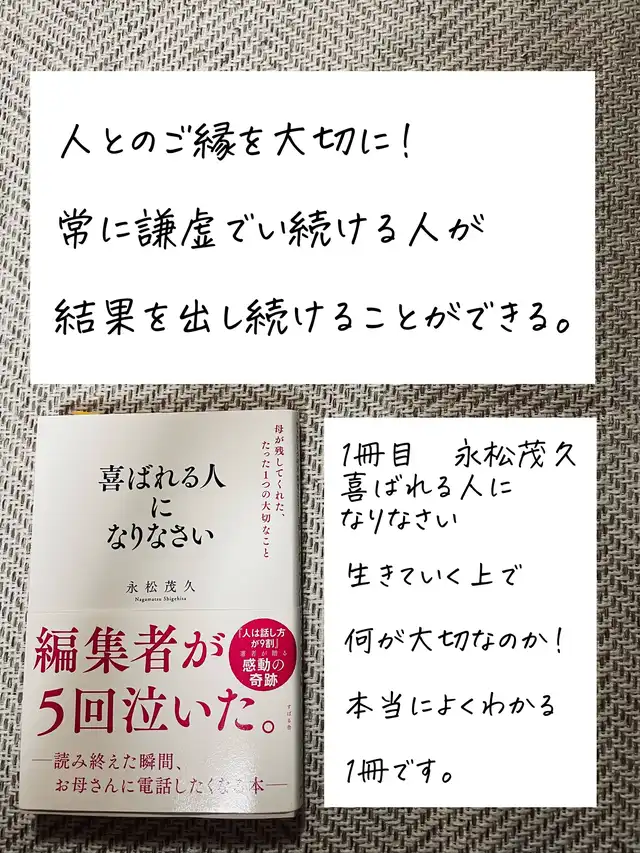 人とのご縁を大切に！
常に謙虚でい続ける人が
結果を出し続けることができる。
母が残してくれた、
たった1つの大切なこと
喜ばれる人
に
なりなさい
永松茂久
Nagamatsu Shigehisa
編集者が
5回泣いた。
『人は話し方
が9割』
著者が贈る
感動の
奇跡
すばる舎
―読み終えた瞬間、
お母さんに電話したくなる本―
1冊目　永松茂久
喜ばれる人に
なりなさい
生きていく上で
何が大切なのか！
本当によくわかる
1冊です。